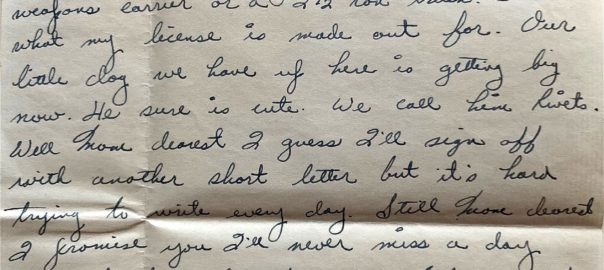 weapons carrier or a 2½ ton
what my license is made out for. Our
little dog we have up here is getting big
now. He sure is cute. We call him Rivets.
Well Mom dearest I guess I'll sign off
with another short letter but it's hard
trying to write every day. Still Mom dearest
I promise you I'll never miss a day